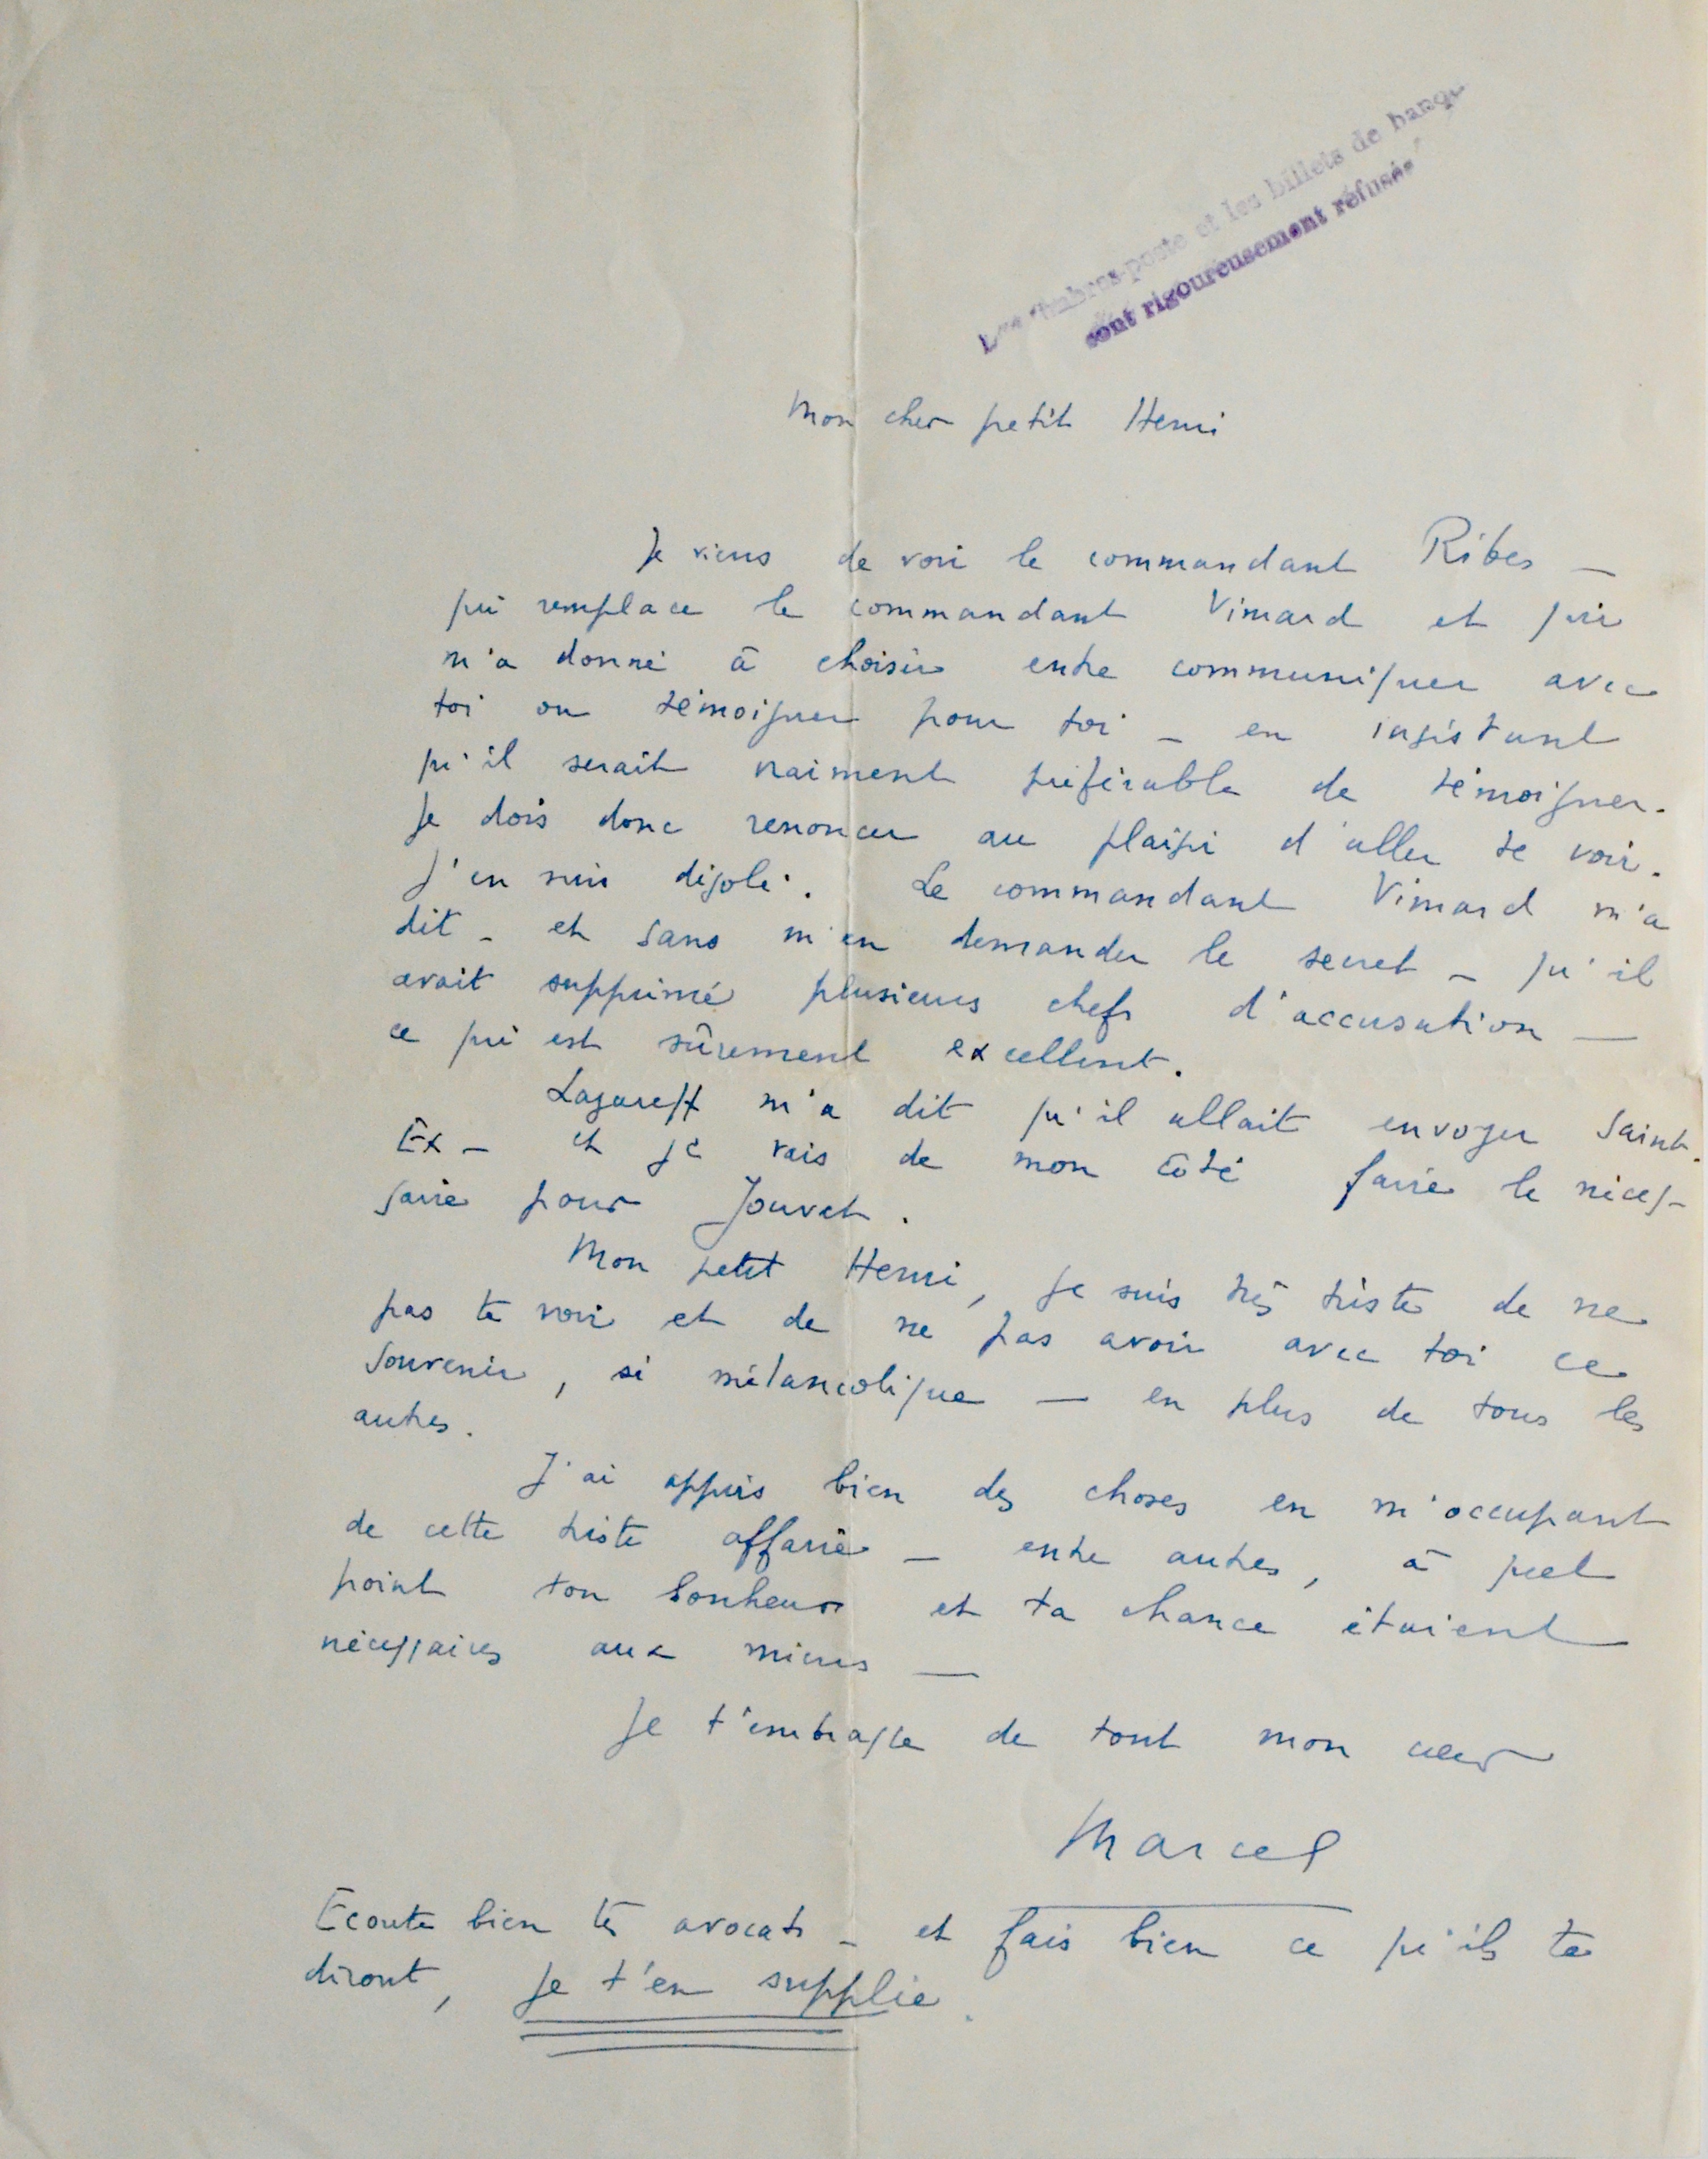 Les timbres-poste et les billets de banque
sont rigoureusement refusés
Mon cher petit Henri
Je viens de voir le commandant Ribes —
qui remplace le commandant Vimard et qui
m'a donné à choisir entre communiquer avec
toi ou témoigner pour toi — en insistant
qu'il serait vraiment préférable de témoigner.
Je dois donc renoncer au plaisir d'aller te voir.
J'en suis désolé. Le commandant Vimard m'a
dit — et sans m'en demander le secret — qu'il
avait supprimé plusieurs chefs d'accusation —
ce qui est sûrement excellent.
Lazareff m'a dit qu'il allait envoyer Saint-
Ex — et je vais de mon côté faire le néces-
saire pour Jouvet.
Mon petit Henri, je suis très triste de ne
pas te voir et de ne pas avoir avec toi ce
souvenir, si mélancolique — en plus de tous les
autres.
J'ai appris bien des choses en m'occupant
de cette triste affaire — entre autres, à quel
point ton bonheur et ta chance étaient
nécessaires aux miens —
Je t'embrasse de tout mon cœur
Marcel
Ecoute bien tes avocats — et fais bien ce qu'ils te
diront, je t'en supplie.